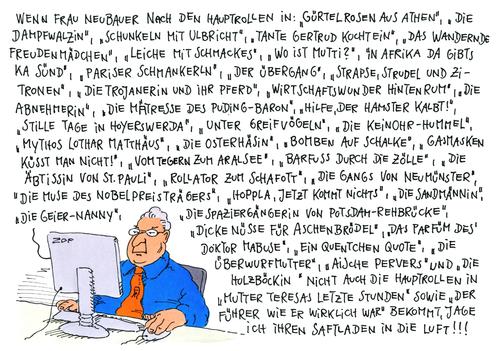 WENN FRAU NEUBAUER NACH DEN HAUPTROLLEN IN: „GÜRTELROSEN AUS ATHEN", „DIE
DAMPFWALZIN", „SCHUNKELN MIT ULBRICHT", „TANTE GERTRUD KOCHT EIN", „DAS WANDERNDE
FREUDENMÄDCHEN", „LEICHE MIT SCHMACKES", „WO IST MUTTI?", „IN AFRIKA DA GIBTS
KA SÜND", „PARISER SCHMANKERLN", „DER ÜBERGANG", „STRAPSE, STRUDEL UND ZI-
TRONEN", „DIE TROJANERIN UND IHR PFERD", „WIRTSCHAFTSWUNDER HINTENRUM", „DIE
ABNEHMERIN", „DIE MÄTRESSE DES PUDING-BARON", „HILFE, DER HAMSTER KALBT!",
„STILLE TAGE IN HOYERSWERDA", „UNTER GREIFVÖGELN", „DIE KEINOHR-HUMMEL",
„MYTHOS LOTHAR MATTHÄUS", „DIE OSTERHÄSIN", „BOMBEN AUF SCHALKE", „GASMASKEN
KÜSST MAN NICHT!", „VOM TEGERN ZUM ARALSEE", „BARFUSS DURCH DIE ZÖLLE", „DIE
ÄBTISSIN VON ST. PAULI", „ROLLATOR ZUM SCHAFOTT", „DIE GANGS VON NEUMÜNSTER",
„DIE MUSE DES NOBELPREISTRÄGERS", „HOPPLA, JETZT KOMMT NICHTS", „DIE SANDMÄNNIN",
„DIE GEIER-NANNY", „DIE SPAZIERGÄNGERIN VON POTSDAM-REHBRÜCKE",
„DICKE NÜSSE FÜR ASCHENBRÖDEL", „DAS PARFÜM DES
DOKTOR MABUSE", „EIN QUENTCHEN QUOTE", „DIE
ÜBERWURFMUTTER", „AISCHE PERVERS" UND „DIE
HOLZBÖCKIN" NICHT AUCH DIE HAUPTROLLEN IN
„MUTTER TERESAS LETZTE STUNDEN" SOWIE „DER
FÜHRER WIE ER WIRKLICH WAR" BEKOMMT, JAGE
ICH IHREN SAFTLADEN IN DIE LUFT!!!
ZDF